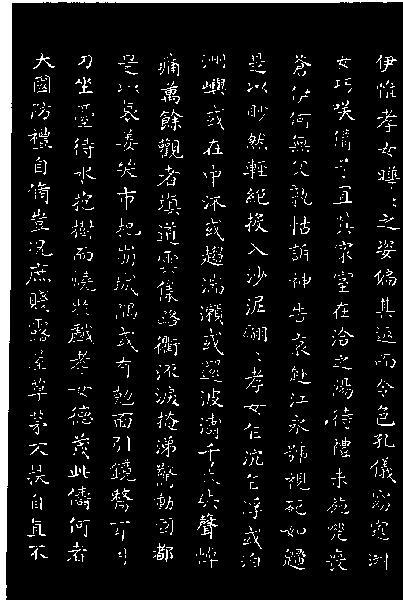 伊惟孝女曄〻之姿偏其返而令色孔儀窈窕淑
女巧咲倩兮宜其家室在洽之陽待禮未施嗟喪
蒼伊何無父孰怙訴神告哀赴江永號視死如歸
是以眇然輕絕投入沙泥翩〻孝女乍沉乍浮或泊
洲嶼或在中流或趨湍瀨或還波濤千夫失聲悼
痛萬餘觀者填道雲集路衢流淚掩涕驚動國都
是以哀姜哭市杞崩城隅或有剋面引鏡剺耳用
刀坐臺待水抱樹而燒於戲孝女德茂此儔何者
大國防禮自脩豈況庶賤露屋草茅不扶自直不